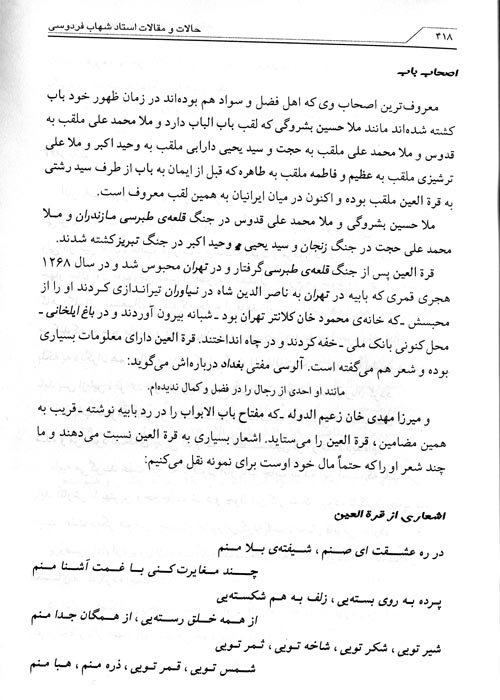 ۳۱۸
حالات و مقالات استاد شهاب فردوسی
اصحاب باب
معروف‌ترین اصحاب وی که اهل فضل و سواد هم بوده‌اند در زمان ظهور خود باب
کشته شده‌اند مانند ملا حسین بشروگی که لقب باب الباب دارد و ملا محمد علی ملقب به
قدوس و ملا محمد علی ملقب به حجت و سید یحیی دارابی ملقب به وحید اکبر و ملا علی
ترشیزی ملقب به عظیم و فاطمه ملقب به طاهره که قبل از ایمان به باب از طرف سید رشتی
به قرة العین ملقب بوده و اکنون در میان ایرانیان به همین لقب معروف است.
ملا حسین بشروگی و ملا محمد علی قدوس در جنگ قلعه‌ی طبرسی مازندران و ملا
محمد علی حجت در جنگ زنجان و سید یحیی و وحید اکبر در جنگ تبریز کشته شدند.
قرة العین پس از جنگ قلعه‌ی طبرسی گرفتار و در تهران محبوس شد و در سال ۱۲۶۸
هجری قمری که بابیه در تهران به ناصر الدین شاه در نیاوران تیراندازی کردند او را از
محبسش ـ که خانه‌ی محمود خان کلانتر تهران بود ـ شبانه بیرون آوردند و در باغ ایلخانی ـ
محل کنونی بانک ملی ـ خفه کردند و در چاه انداختند. قرة العین دارای معلومات بسیاری
بوده و شعر هم می‌گفته است. آلوسی مفتی بغداد درباره‌اش می‌گوید:
مانند او احدی از رجال را در فضل و کمال ندیده‌ام.
و میرزا مهدی خان زعیم الدوله ـ که مفتاح باب الابواب را در رد بابیه نوشته ـ قریب به
همین مضامین، قرة العین را می‌ستاید. اشعار بسیاری به قرة العین نسبت می‌دهند و ما
چند شعر او را که حتماً مال خود اوست برای نمونه نقل می‌کنیم:
اشعاری از قرة العین
در ره عشقت ای صنم، شیفته‌ی بلا منم
چند مغایرت کنی با غمت آشنا منم
پرده به روی بسته‌یی، زلف به هم شکسته‌یی
از همه خلق رسته‌یی، از همگان جدا منم
شیر تویی، شکر تویی، شاخه تویی، ثمر تویی
شمس تویی، قمر تویی، ذره منم، هبا منم